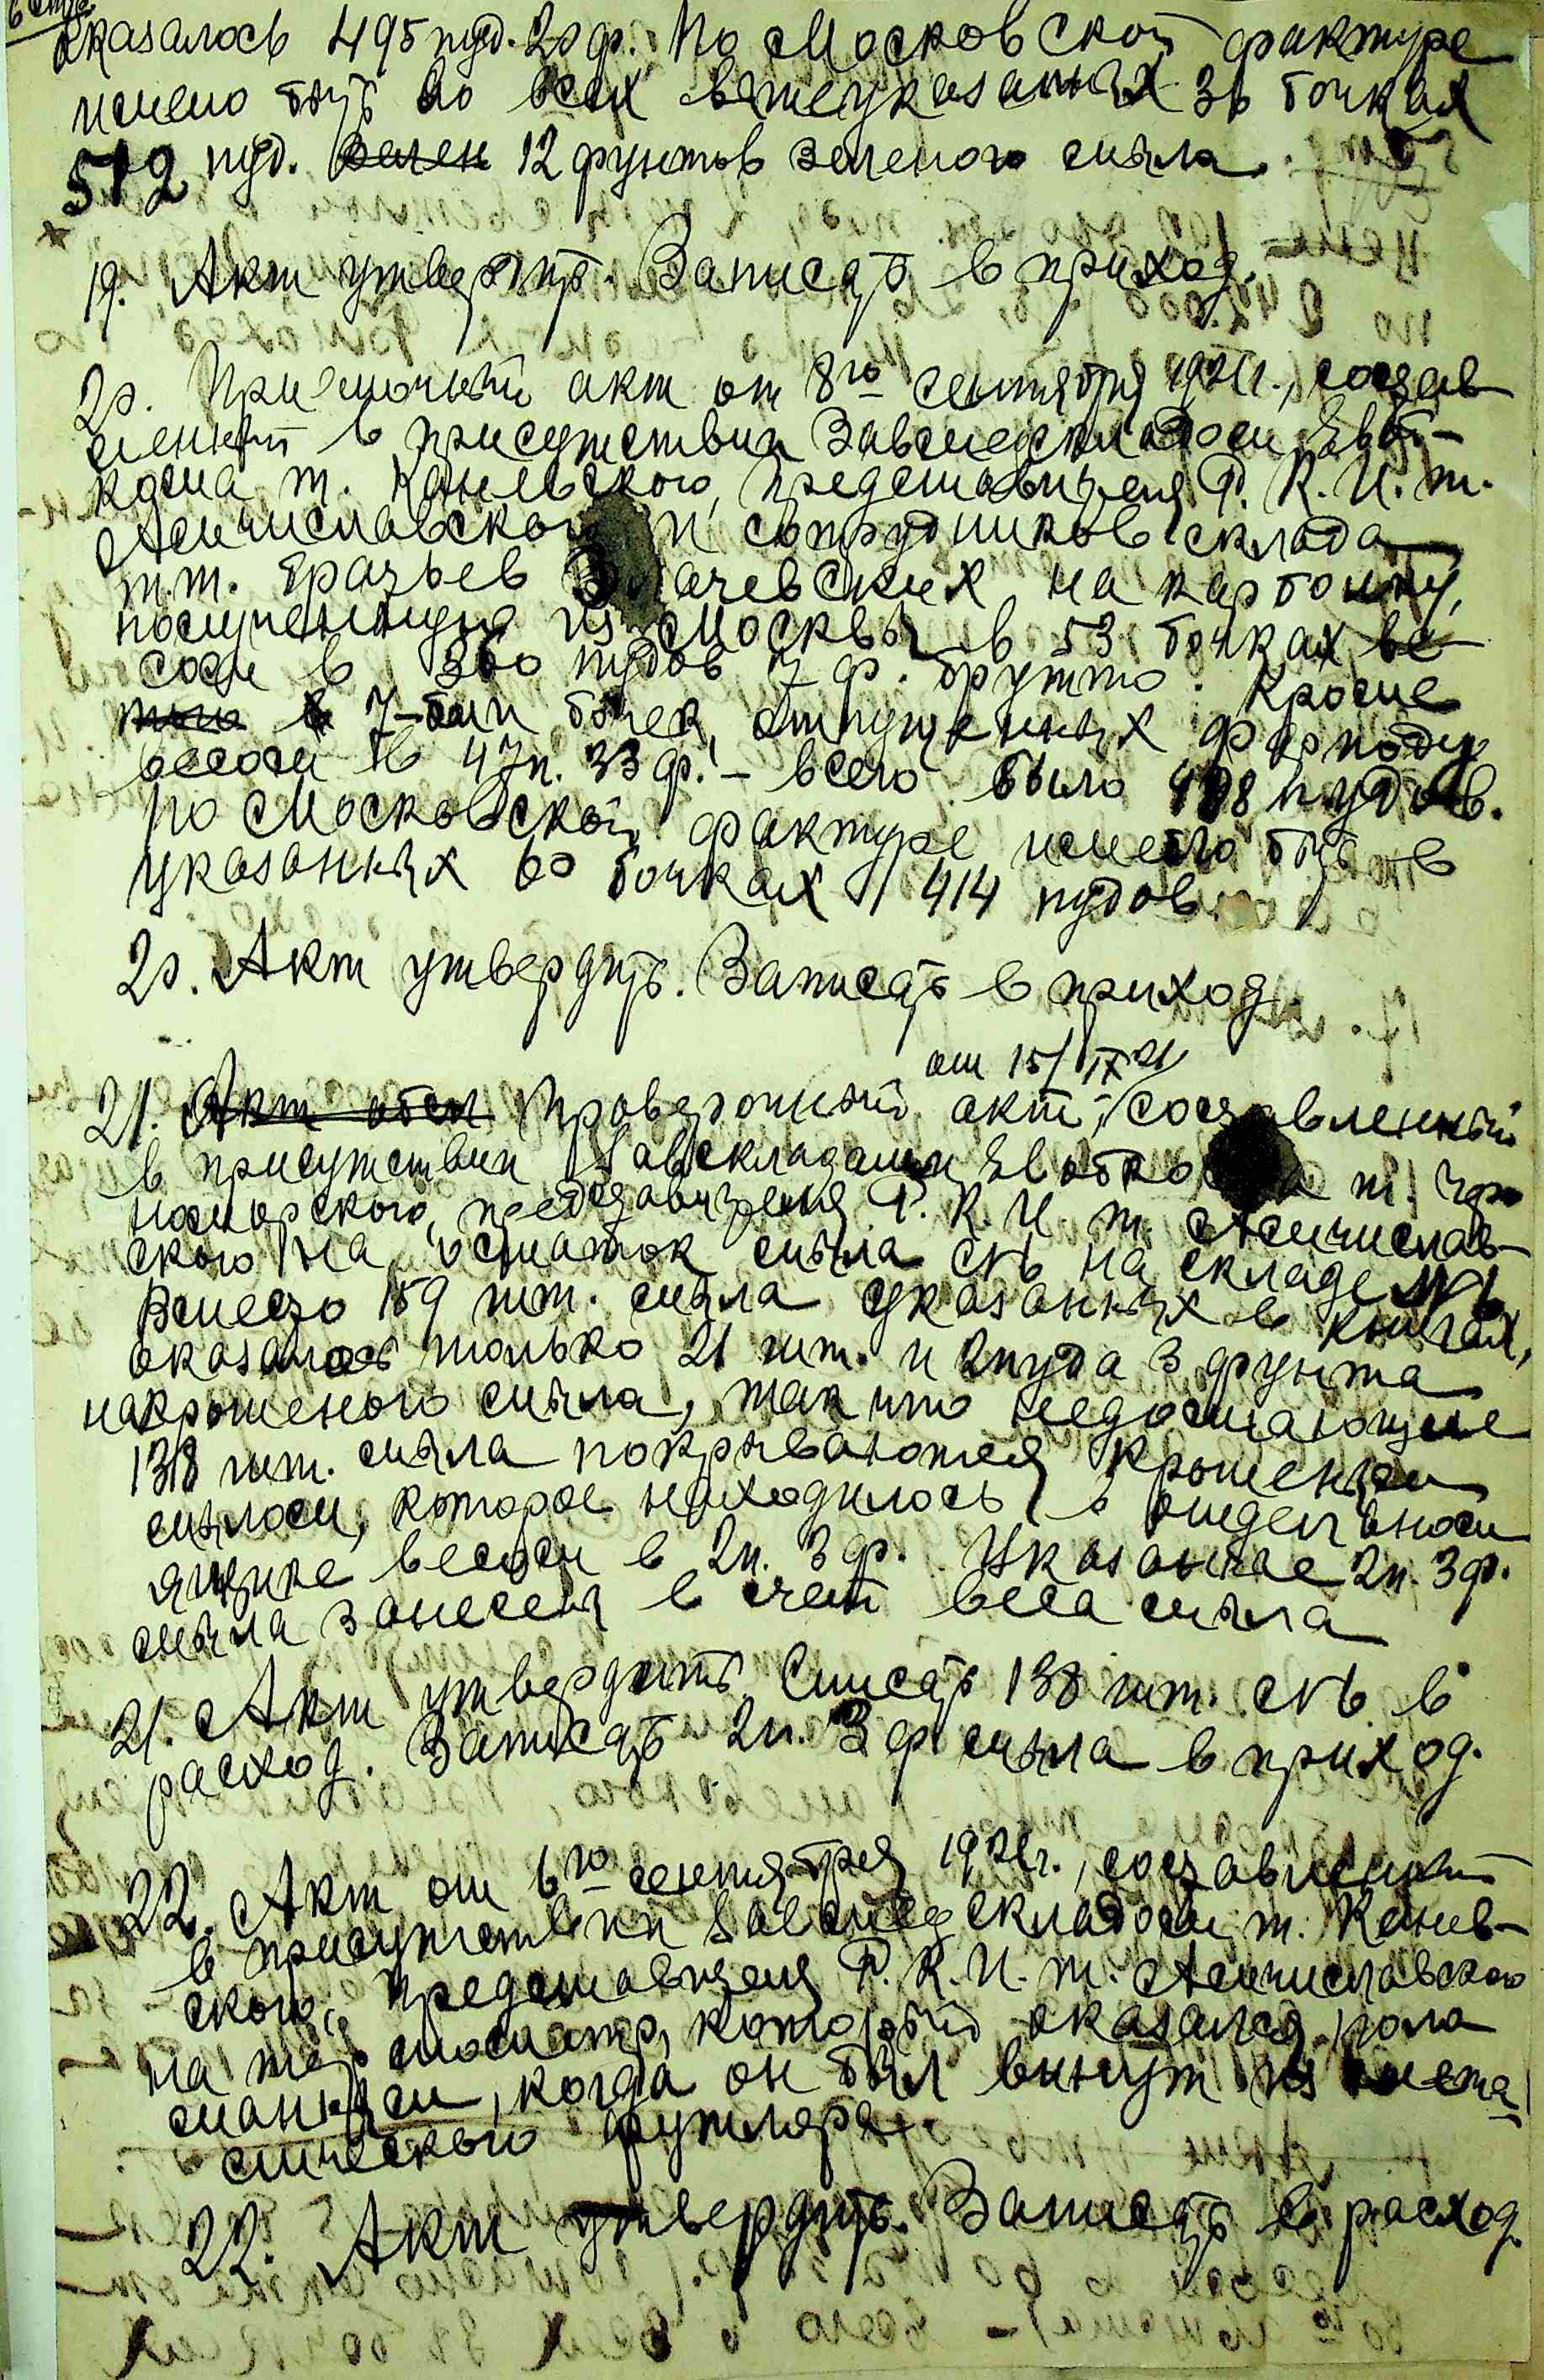 оказалось 495 пуд. 20 ф. По Московской фактуре
имело быть во всех вышеуказанных 36 бочках
512 пуд. Зелен 12 фунтов зеленого мыла.
19. Акт утвердить. Записать в приход.
20. Приемочный акт от 8го сентября 1921 г., состав
ленный в присутствии Завмедскладом Евоб-
кома т. Каневского, представителя Р. К. И. т.
Мечиславского и сотрудников склада
т.т. братьев на карболку,
полученную из Москвы в 53 бочках ве
сом в 360 пудов 7 ф. брутто. Кроме
того в 7-ми бочек, отпущенных
весом в 47 п. 33 ф. – всего было 408 пудов.
По Московской фактуре имело быть в
указанных 60 бочках 414 пудов
20. Акт утвердить. Записать в приход.
от 15/IX 21
21. Акт Проверочный акт, составленный
в присутствии Завскладами Евобкома т.
представителя Р. К. И т. Мечислав-
ского на остаток мыла на складе №1
Вместо 159 шт. мыла указанных в книгах,
оказалось только 21 шт. и 2 пуда 3 фунта
накрошеного мыла, так что недостающие
138 шт. мыла покрываются крошеным
мылом, которое находилось в отдельном
ящике весом в 2 п. 3 ф. Указаные 2 п. 3 ф.
мыла занесены в счет веса мыла
21. Акт утвердить. Списать 138 шт. в
расход. Записать 2 п. 3 ф мыла в приход.
22. Акт от 6го сентября 1921 г., составленный
в присутствии Завмедскладом т. Канев-
ского, представителя Р. К. И. т. Мечиславского
на термометр, который оказался поло
манным, когда он был вынут из мета
лического футляра.
22. Акт утвердить. Записать в расход.